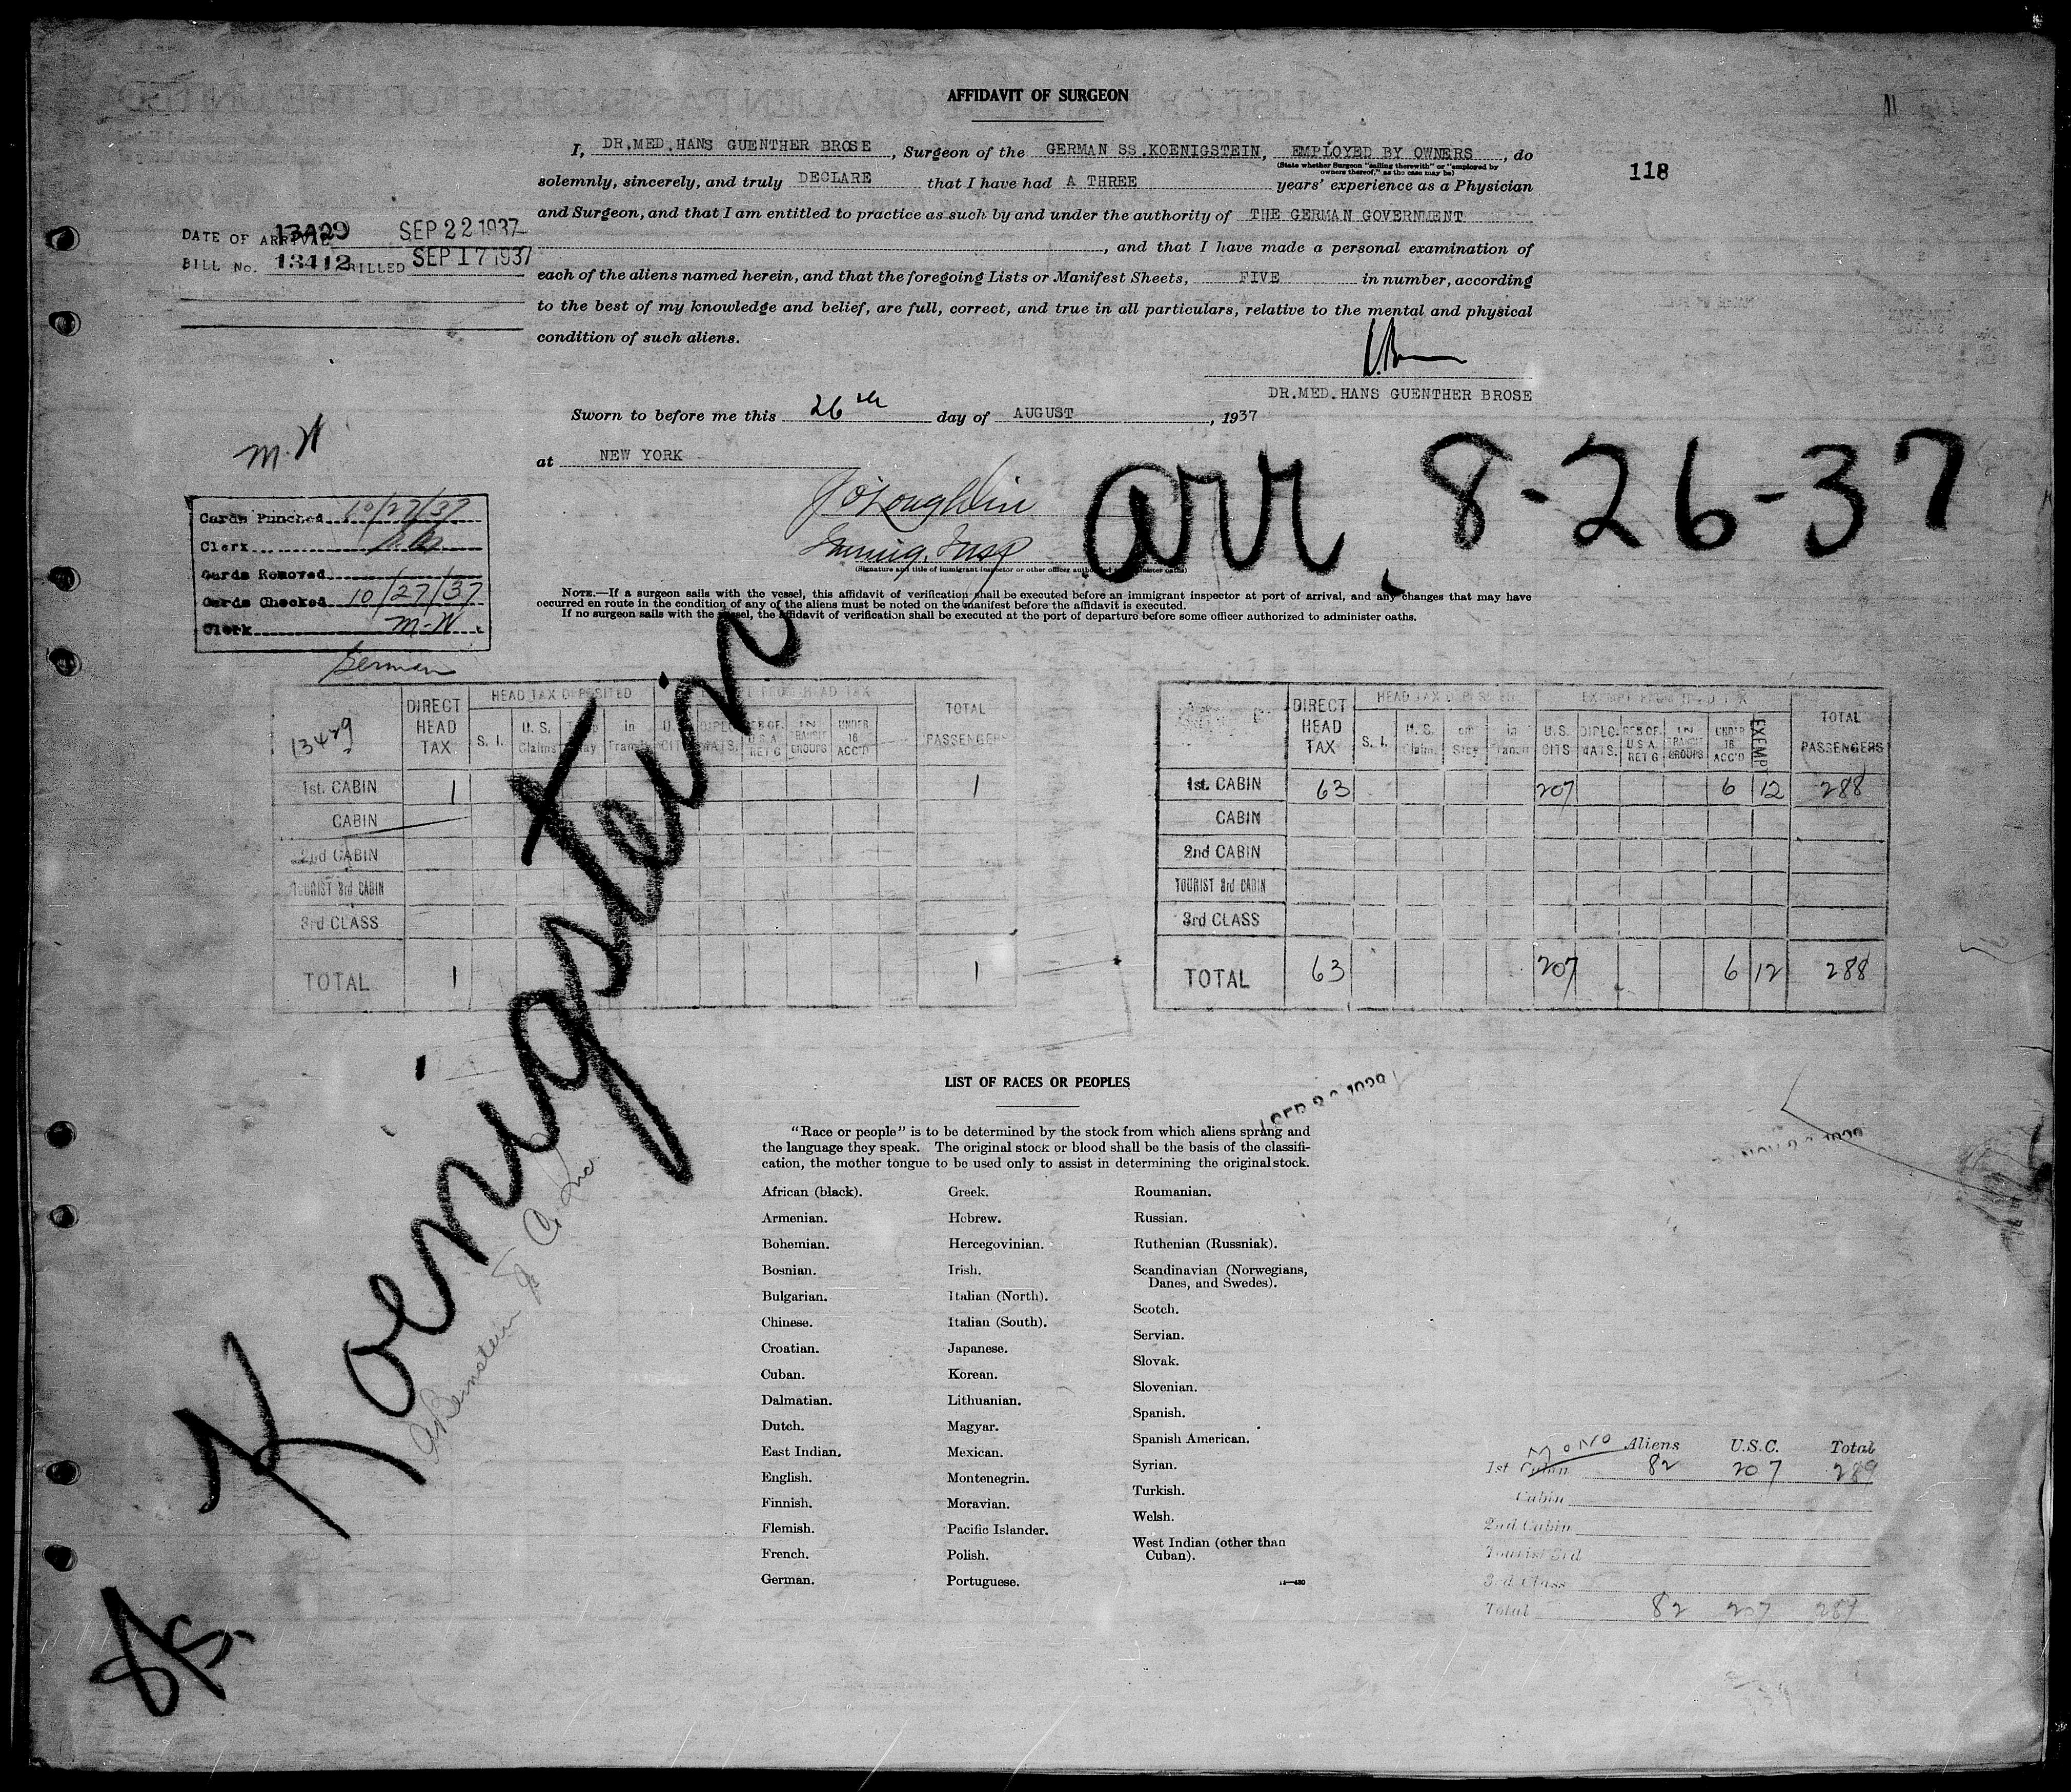 AFFIDAVIT OF SURGEON
I, DR.MED.HANS GUENTHER BROSE, Surgeon of the GERMAN SS.KOENIGSTEIN, EMPLOYED BY OWNERS, do
(State whether Surgeon "sailing therewith" or "employed by
owners thereof," as the case may be)
118
solemnly, sincerely, and truly DECLARE that I have had A THREE years' experience as a Physician
and Surgeon, and that I am entitled to practice as such by and under the authority of THE GERMAN GOVERNMENT
, and that I have made a personal examination of
each of the aliens named herein, and that the foregoing Lists or Manifest Sheets, FIVE in number, according
to the best of my knowledge and belief, are full, correct, and true in all particulars, relative to the mental and physical
condition of such aliens.
DATE OF ARRIVAL 13429 SEP 22 1937
BILL No. 13412 BILLED SEP 17 1937
DR.MED.HANS GUENTHER BROSE
Sworn to before me this 26th day of AUGUST, 1937
at NEW YORK
J O'Loughlin
Immig. Insp
(Signature and title of immigrant inspector or other officer authorized to administer oaths)
arr. 8-26-37
NOTE.—If a surgeon sails with the vessel, this affidavit of verification shall be executed before an immigrant inspector at port of arrival, and any changes that may have
occurred en route in the condition of any of the aliens must be noted on the manifest before the affidavit is executed.
If no surgeon sails with the vessel, the affidavit of verification shall be executed at the port of departure before some officer authorized to administer oaths.
M.W
Cards Punched 10/27/37
Clerk
Cards Removed
Cards Checked 10/27/37
Clerk M-W.
German
13429
DIRECT HEAD TAX
HEAD TAX DEPOSITED
EXEMPT FROM HEAD TAX
TOTAL PASSENGERS
S. I. U. S. Claims in Transit U.S. CITS DIPLOMATS. RES OF. U.S.A. RET'G IN TRANSIT GROUPS UNDER 16 ACC'D
1st. CABIN 1 1
CABIN
2nd CABIN
TOURIST 3rd CABIN
3rd CLASS
TOTAL 1 1
DIRECT HEAD TAX
HEAD TAX DEPOSITED
EXEMPT FROM HEAD TAX
TOTAL PASSENGERS
S. I. U. S. Claim. Stay in Transit U. S. CITS DIPLO-MATS. RES OF. U.S.A. RET'G IN TRANSIT GROUPS UNDER 16 ACC'D EXEMP
1st. CABIN 63 207 6 12 288
CABIN
2nd CABIN
TOURIST 3rd CABIN
3rd CLASS
TOTAL 63 207 6 12 288
Koenigstein
A Bernstein & Co. Inc.
LIST OF RACES OR PEOPLES
"Race or people" is to be determined by the stock from which aliens sprang and
the language they speak. The original stock or blood shall be the basis of the classifi-
cation, the mother tongue to be used only to assist in determining the original stock.
African (black).
Armenian.
Bohemian.
Bosnian.
Bulgarian.
Chinese.
Croatian.
Cuban.
Dalmatian.
Dutch.
East Indian.
English.
Finnish.
Flemish.
French.
German.
Greek.
Hebrew.
Hercegovinian.
Irish.
Italian (North).
Italian (South).
Japanese.
Korean.
Lithuanian.
Magyar.
Mexican.
Montenegrin.
Moravian.
Pacific Islander.
Polish.
Portuguese.
Roumanian.
Russian.
Ruthenian (Russniak).
Scandinavian (Norwegians,
Danes, and Swedes).
Scotch.
Servian.
Slovak.
Slovenian.
Spanish.
Spanish American.
Syrian.
Turkish.
Welsh.
West Indian (other than
Cuban).
Mono Aliens U.S.C. Total
1st Cabin 82 207 289
Cabin
2nd Cabin
Tourist 3rd
3rd Class
Total 82 207 289